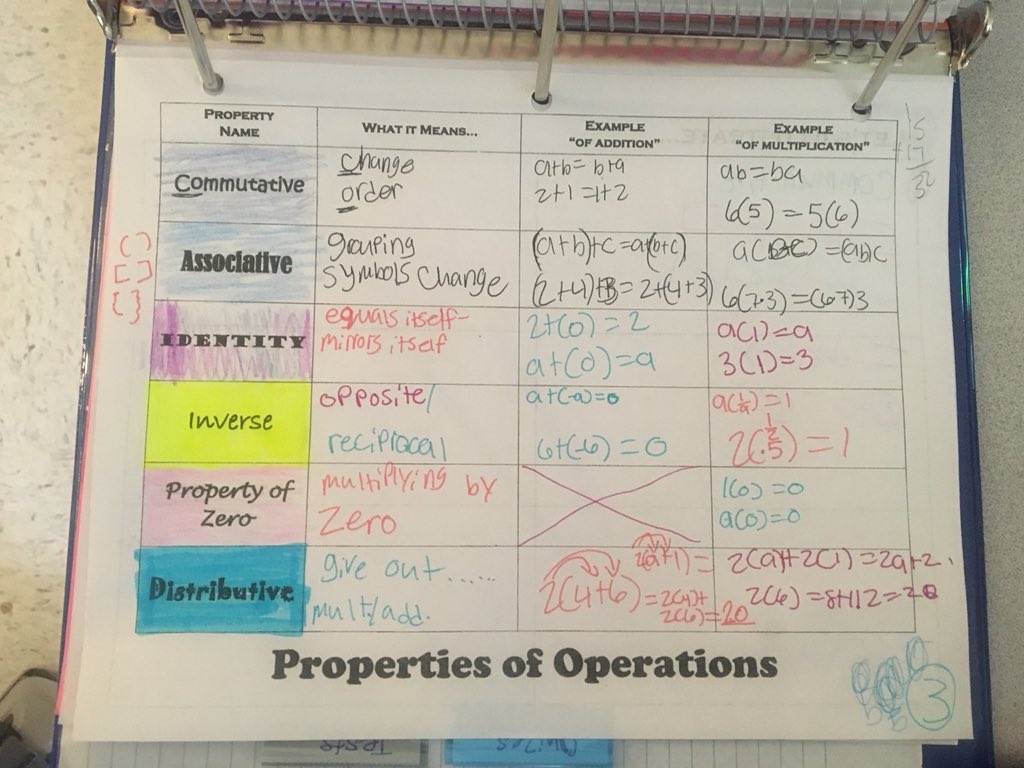 PROPERTY NAME
WHAT IT MEANS...
EXAMPLE "OF ADDITION"
EXAMPLE "OF MULTIPLICATION"
15
+17
32
Commutative
change
order
a+b= b+a
2+1=1+2
ab=ba
6(5)=5(6)
( )
[ ]
{ }
Associative
grouping
symbols change
(a+b)+c=a+(b+c)
(2+4)+3=2+(4+3)
a(bc)=(ab)c
6(7·3)=(6·7)3
IDENTITY
equals itself-
mirrors itself
2+(0)=2
a+(0)=a
a(1)=a
3(1)=3
Inverse
opposite/
reciprocal
a+(-a)=0
6+(-6)=0
a(1/a)=1
2(.5)=1
Property of
Zero
multiplying by
Zero
1(0)=0
a(0)=0
Distributive
give out......
mult/add.
2(a+1)=
2(4+6)=2(4)+
2(6)=20
2(a)+2(1)=2a+2
2(6)=8+12=20
Properties of Operations
3
Tests
Quizes